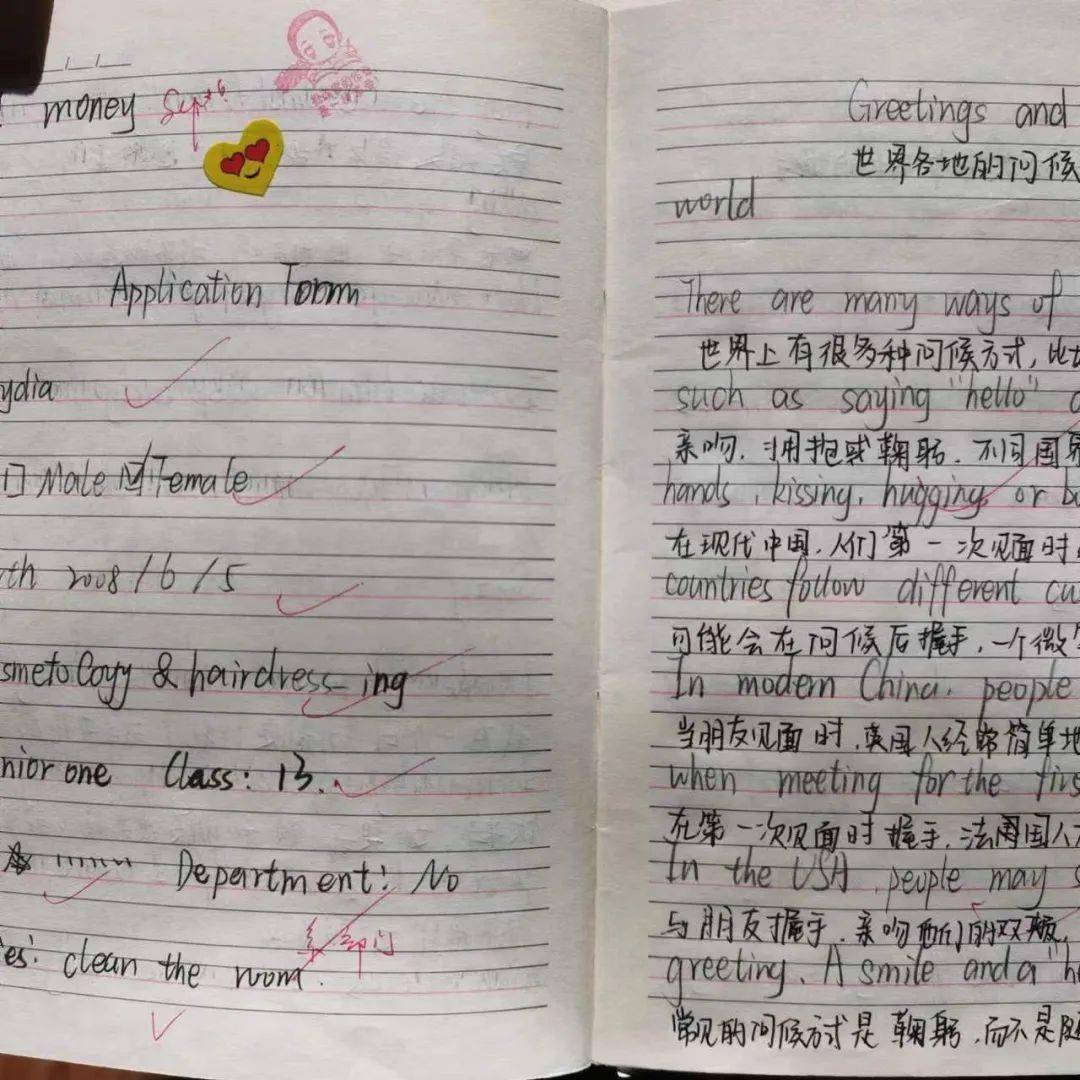 money Sept
Application Form
ydia
Male Female
th 2008/6/5
smetology & hairdress-ing
nior one Class: 13.
Department: No
系 部门
es: clean the room.
Greetings and
世界各地的问候
world
There are many ways of
世界上有很多种问候方式,比
such as saying "hello"
亲吻,拥抱或鞠躬.不同国家
hands, kissing, hugging, or b
在现代中国,人们第一次见面时
countries follow different cu
可能会在问候后握手,一个微
In modern China, people
当朋友见面时,英国人经常简单地
when meeting for the firs
在第一次见面时握手,法国人
In the USA, people may s
与朋友握手,亲吻他们的双颊,
greeting. A smile and a "h
常见的问候方式是鞠躬,而不是